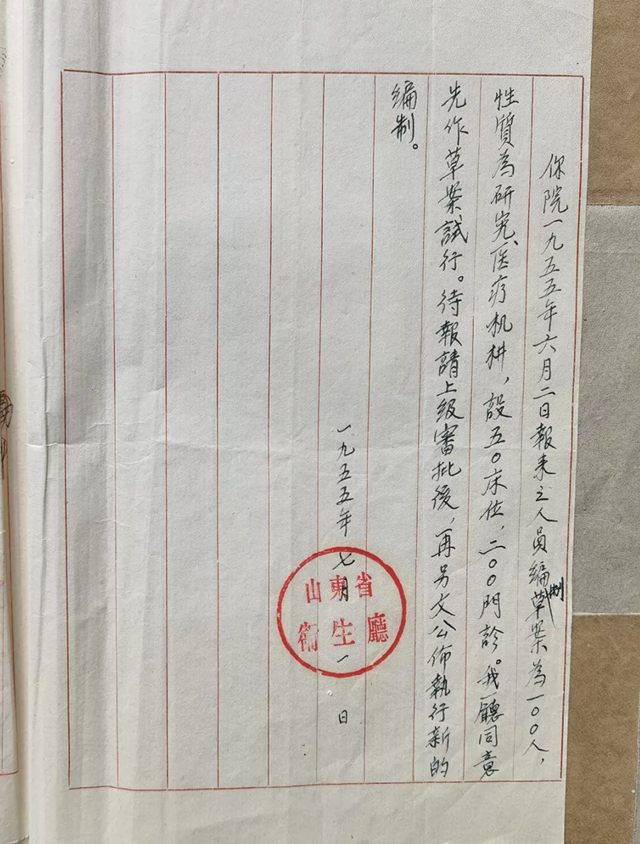 你院一九五五年六月二日報来之人員編制草案為一00人，
性質為研究、医疗机构，設五0床位，二00門診。我廳同意
先作草案試行。待報請上級審批後，再另文公佈執行新的
編制。
一九五五年七月一日
山東省
衛生廳